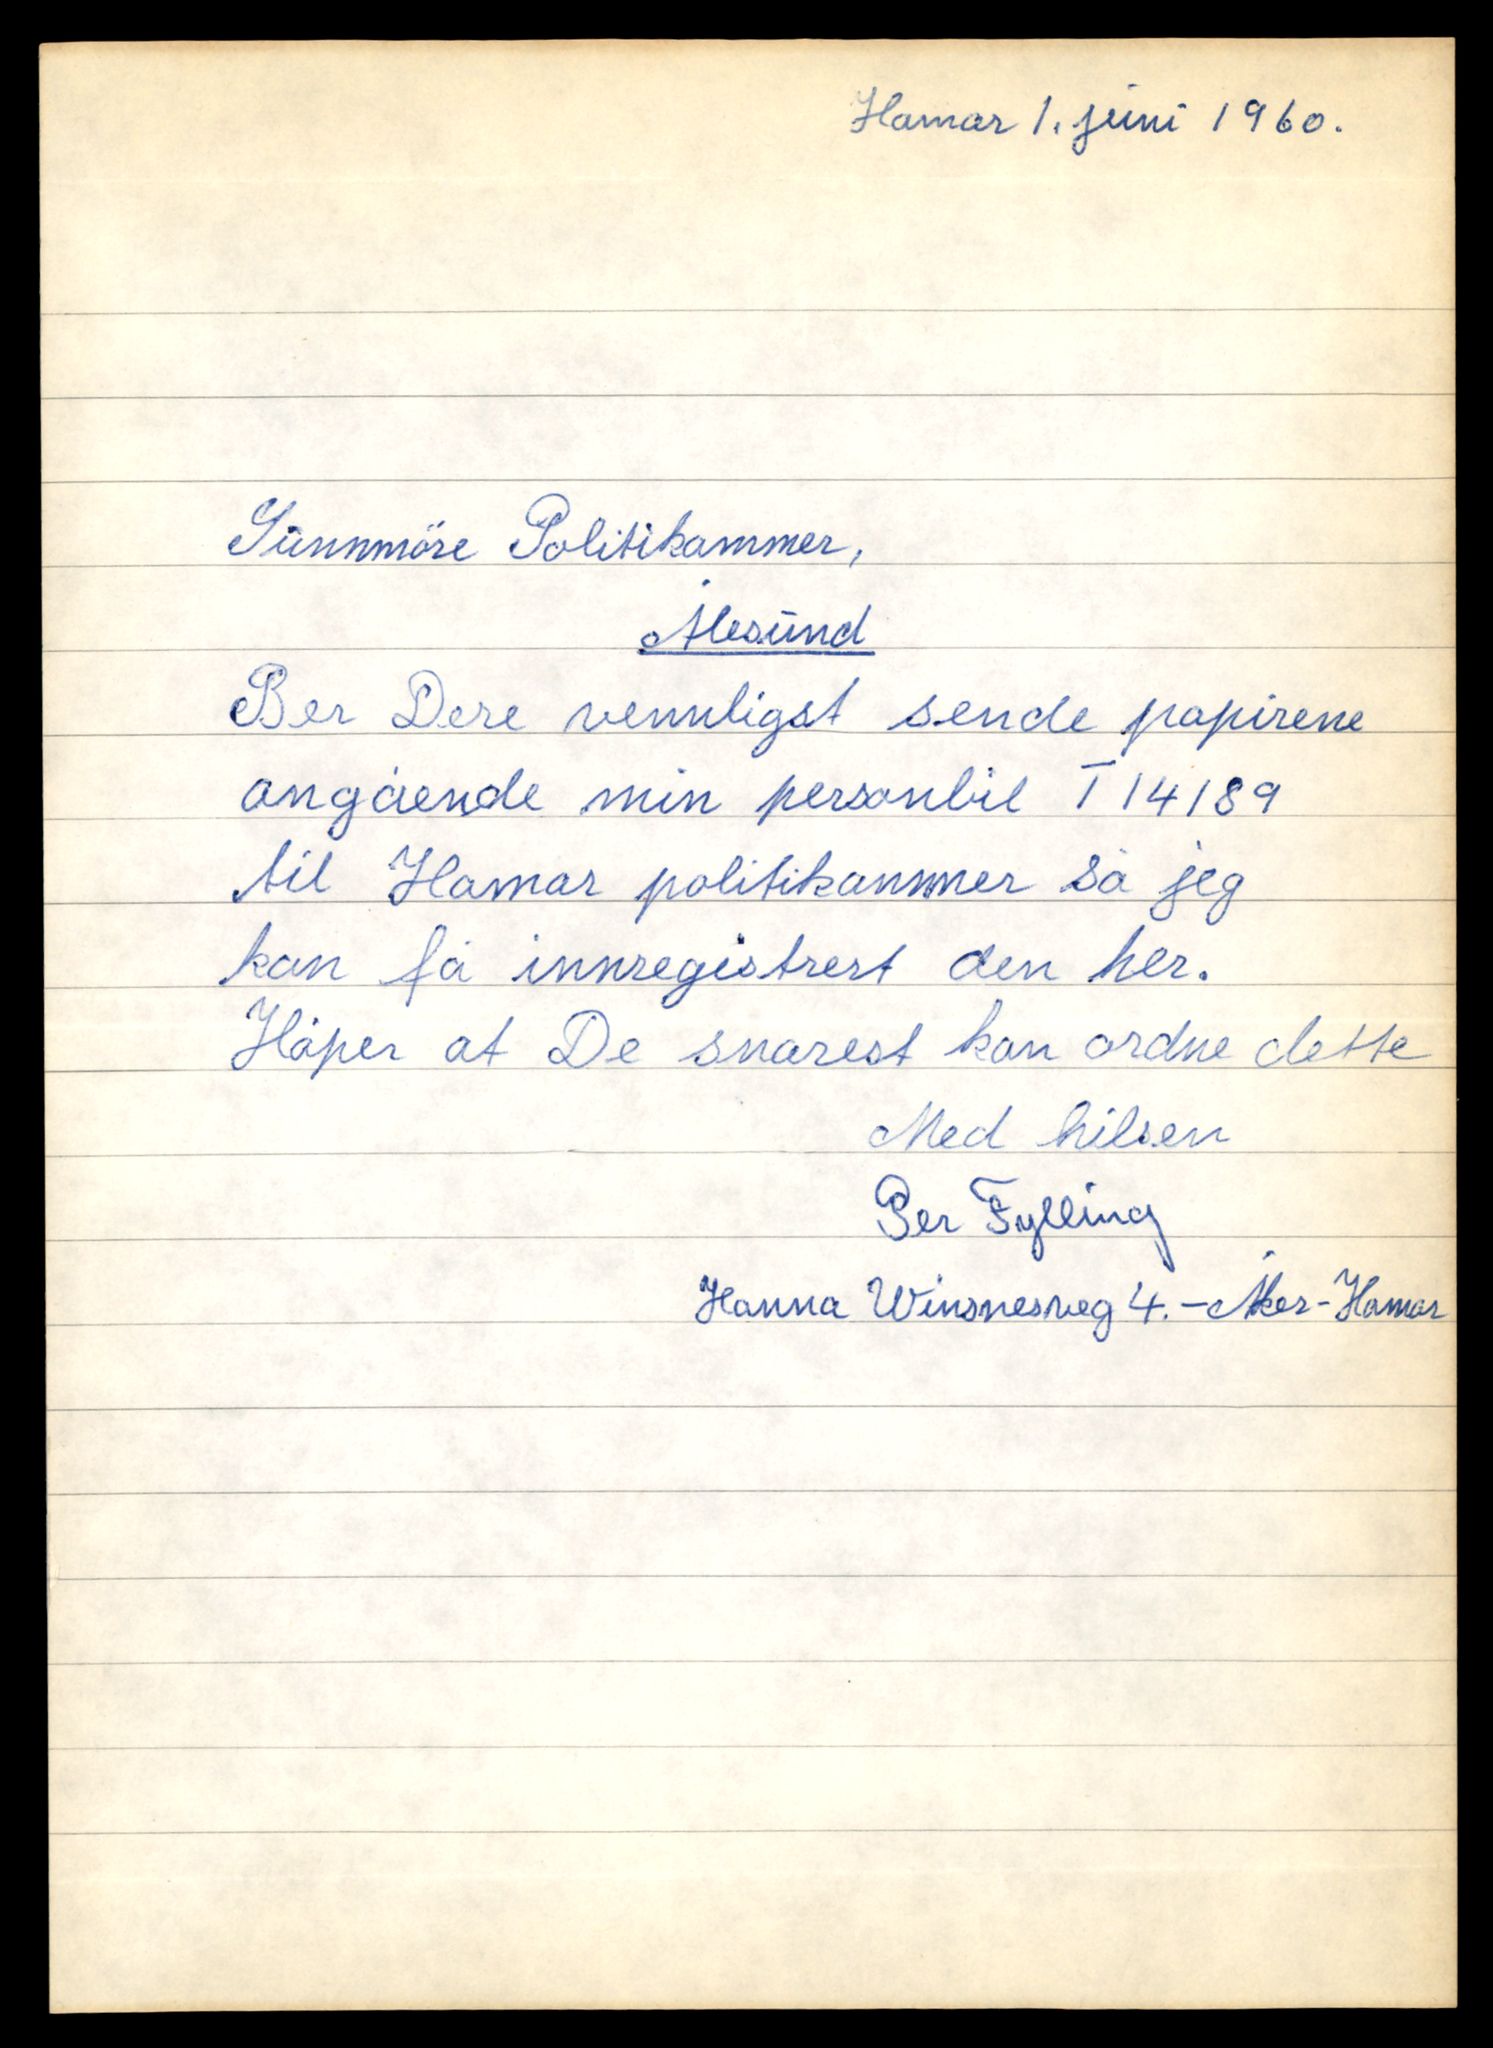 Hamar 1. juni 1960.
Sunnmöre Politikammer,
Ålesund
Ber Dere vennligst sende papirene
angående min personbil T 14189
til Hamar politikammer så jeg
kan få innregistrert den her.
Håper at De snarest kan ordne dette
Med hilsen
Per Fylling
Hanna Winsnesveg 4. - Åker - Hamar